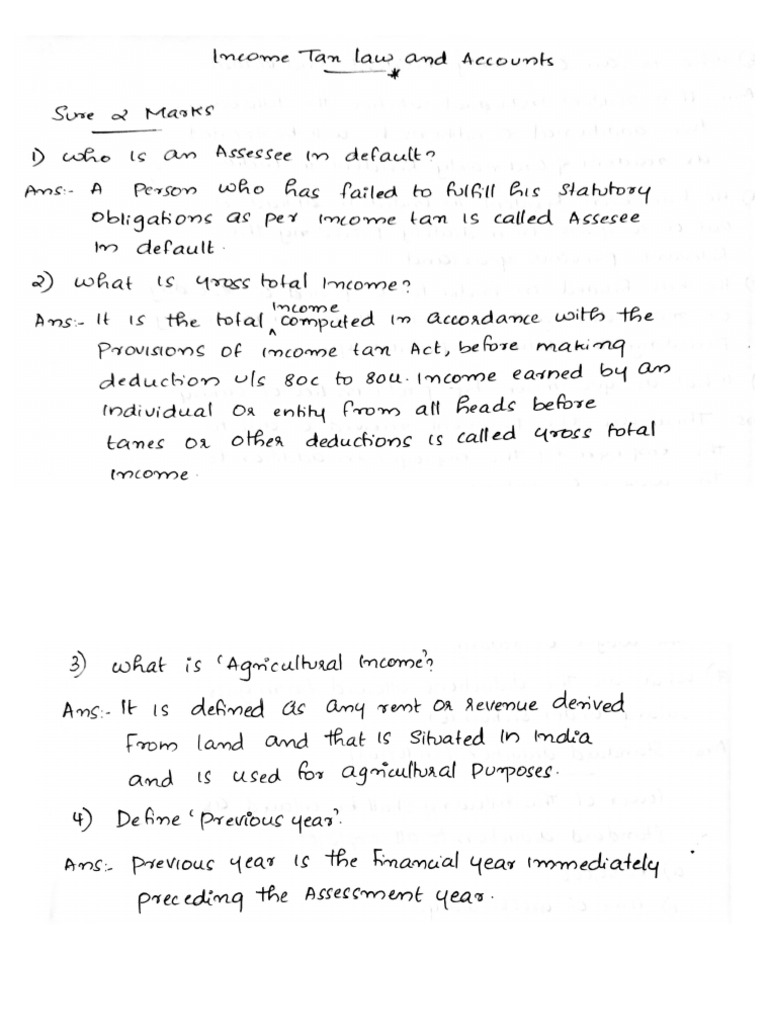 Income Tax law and Accounts
Sure 2 Marks
1) Who is an Assessee in default?
Ans:- A Person who has failed to fulfill his statutory
obligations as per income tax is called Assesee
in default.
2) What is gross total income?
Income
Ans:- It is the total ^ computed in accordance with the
Provisions of income tax Act, before making
deduction u/s 80c to 80u. Income earned by an
individual or entity from all heads before
taxes or other deductions is called gross total
income.
3) What is 'Agricultural Income'?
Ans:- It is defined as any rent or revenue derived
from land and that is situated in India
and is used for agricultural purposes.
4) Define 'Previous year'.
Ans:- Previous year is the Financial year immediately
preceding the Assessment year.